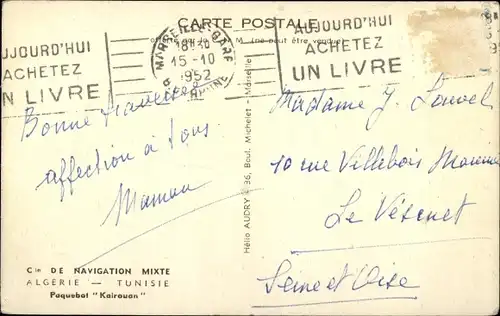 CARTE POSTALE
AUJOURD'HUI
ACHETEZ
UN LIVRE
MARSEILLE-GARE
18H10
15-10
1952
AUJOURD'HUI
ACHETEZ
UN LIVRE
(ne peut être vendue)
Bonne traversée
affection à tous
Maman
Madame J. Louvel
10 rue Villebois Mareuil
Le Vésinet
Seine et Oise
Hélio AUDRY - 36, Boul. Michelet - Marseille
Cie DE NAVIGATION MIXTE
ALGERIE — TUNISIE
Paquebot "Kairouan"